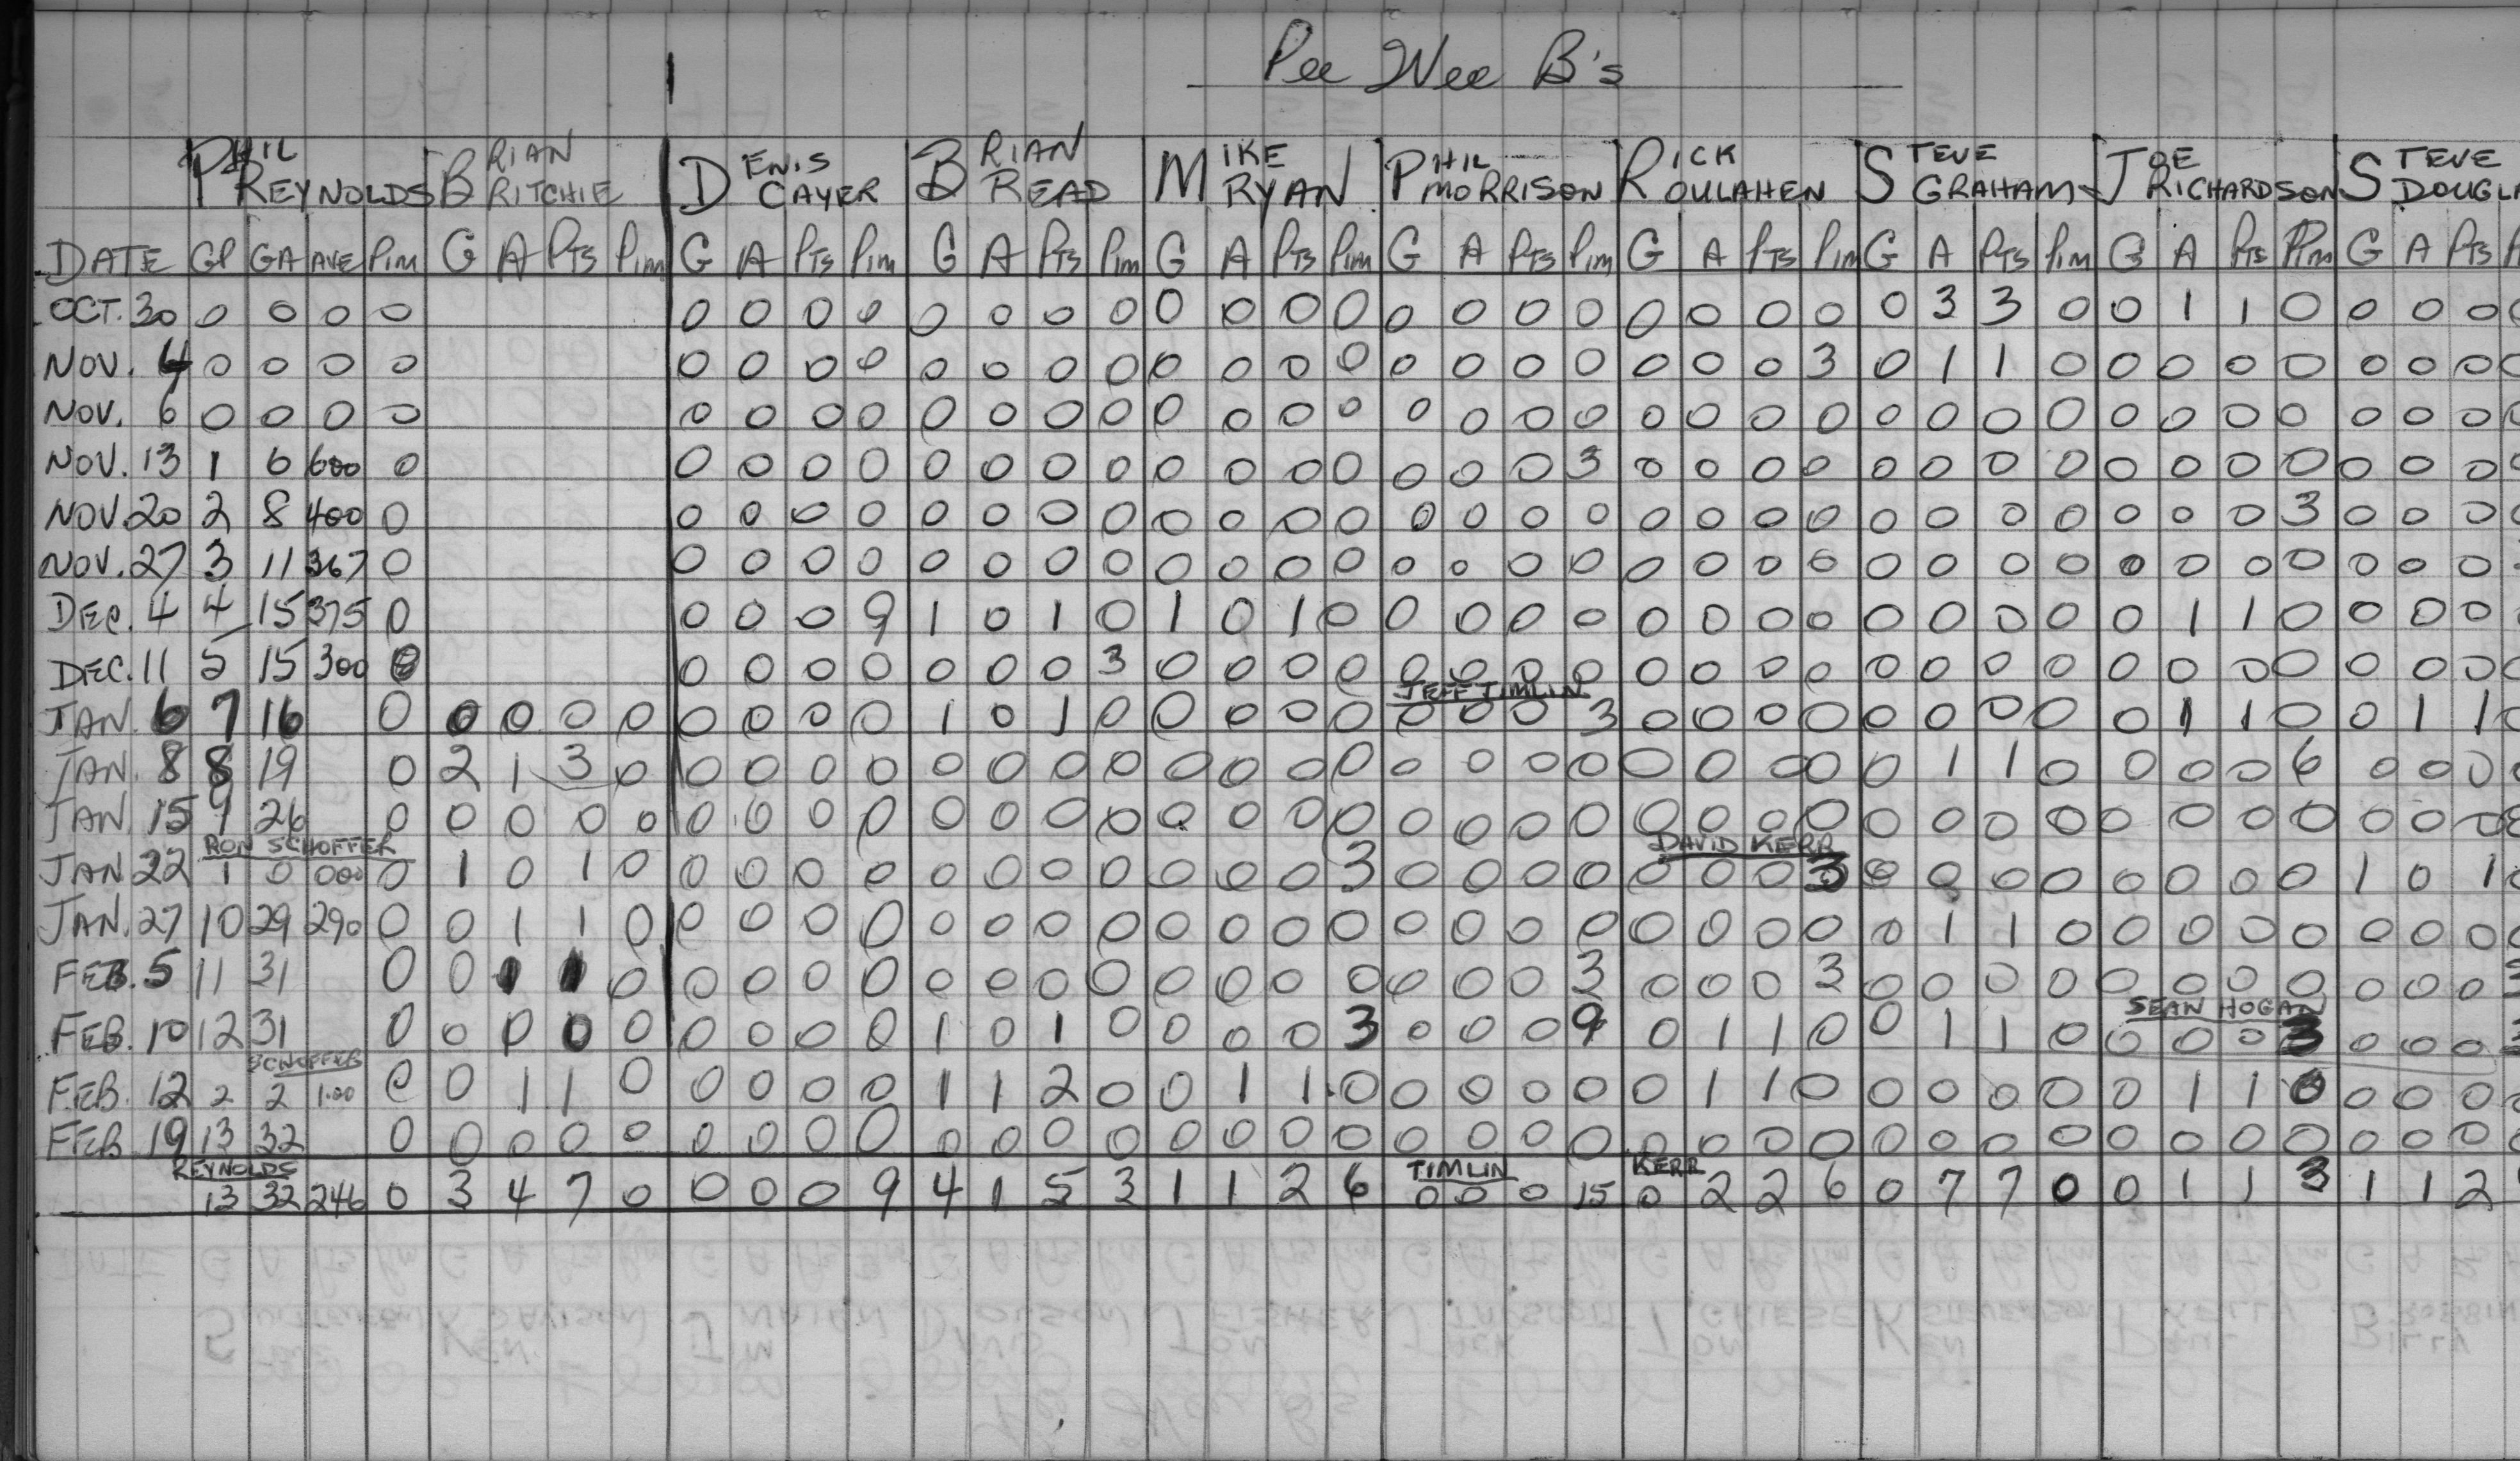 Pee Wee B's
PHIL REYNOLDS BRIAN RITCHIE DENIS CAYER BRIAN READ MIKE RYAN PHIL MORRISON RICK OULAHEN STEVE GRAHAM JOE RICHARDSON STEVE DOUGL
DATE GP GA AVE Pim G A Pts Pim G A Pts Pim G A Pts Pim G A Pts Pim G A Pts Pim G A Pts Pim G A Pts Pim G A Pts Pim G A Pts
OCT. 30 0 0 0 0 0 0 0 0 0 0 0 0 0 0 0 0 0 0 0 0 0 0 0 0 0 3 3 0 0 1 1 0 0 0 0
NOV. 4 0 0 0 0 0 0 0 0 0 0 0 0 0 0 0 0 0 0 0 0 0 0 0 3 0 1 1 0 0 0 0 0 0 0 0
NOV. 6 0 0 0 0 0 0 0 0 0 0 0 0 0 0 0 0 0 0 0 0 0 0 0 0 0 0 0 0 0 0 0 0 0 0 0
NOV. 13 1 6 600 0 0 0 0 0 0 0 0 0 0 0 0 0 0 0 0 3 0 0 0 0 0 0 0 0 0 0 0 0 0 0 0
NOV. 20 2 8 400 0 0 0 0 0 0 0 0 0 0 0 0 0 0 0 0 0 0 0 0 0 0 0 0 0 0 0 0 3 0 0 0
NOV. 27 3 11 367 0 0 0 0 0 0 0 0 0 0 0 0 0 0 0 0 0 0 0 0 0 0 0 0 0 0 0 0 0 0 0 0
DEC. 4 4 15 375 0 0 0 0 9 1 0 1 0 1 0 1 0 0 0 0 0 0 0 0 0 0 0 0 0 0 1 1 0 0 0 0
DEC. 11 5 15 300 0 0 0 0 0 0 0 0 3 0 0 0 0 0 0 0 0 0 0 0 0 0 0 0 0 0 0 0 0 0 0 0
JEFF TIMLIN
JAN. 6 7 16 0 0 0 0 0 0 0 0 0 1 0 1 0 0 0 0 0 0 0 0 3 0 0 0 0 0 0 0 0 0 1 1 0 0 1 1
JAN. 8 8 19 0 2 1 3 0 0 0 0 0 0 0 0 0 0 0 0 0 0 0 0 0 0 0 0 0 0 1 1 0 0 0 0 6 0 0 0
JAN. 15 9 26 0 0 0 0 0 0 0 0 0 0 0 0 0 0 0 0 0 0 0 0 0 0 0 0 0 0 0 0 0 0 0 0 0 0 0 0
RON SCHOFFER DAVID KERR
JAN 22 1 0 000 0 1 0 1 0 0 0 0 0 0 0 0 0 0 0 0 3 0 0 0 0 0 0 0 3 0 0 0 0 0 0 0 0 1 0 1
JAN. 27 10 29 290 0 0 1 1 0 0 0 0 0 0 0 0 0 0 0 0 0 0 0 0 0 0 0 0 0 0 1 1 0 0 0 0 0 0 0 0
FEB. 5 11 31 0 0 1 1 0 0 0 0 0 0 0 0 0 0 0 0 0 0 0 0 3 0 0 0 3 0 0 0 0 0 0 0 0 0 0 0
SEAN HOGAN
FEB. 10 12 31 0 0 0 0 0 0 0 0 0 1 0 1 0 0 0 0 3 0 0 0 9 0 1 1 0 0 1 1 0 0 0 0 3 0 0 0
SCHOFFER
FEB. 12 2 2 1.00 0 0 1 1 0 0 0 0 0 1 1 2 0 0 1 1 0 0 0 0 0 0 1 1 0 0 0 0 0 0 1 1 0 0 0 0
FEB 19 13 32 0 0 0 0 0 0 0 0 0 0 0 0 0 0 0 0 0 0 0 0 0 0 0 0 0 0 0 0 0 0 0 0 0 0 0 0
REYNOLDS TIMLIN KERR
13 32 246 0 3 4 7 0 0 0 0 9 4 1 5 3 1 1 2 6 0 0 0 15 0 2 2 6 0 7 7 0 0 1 1 3 1 1 2